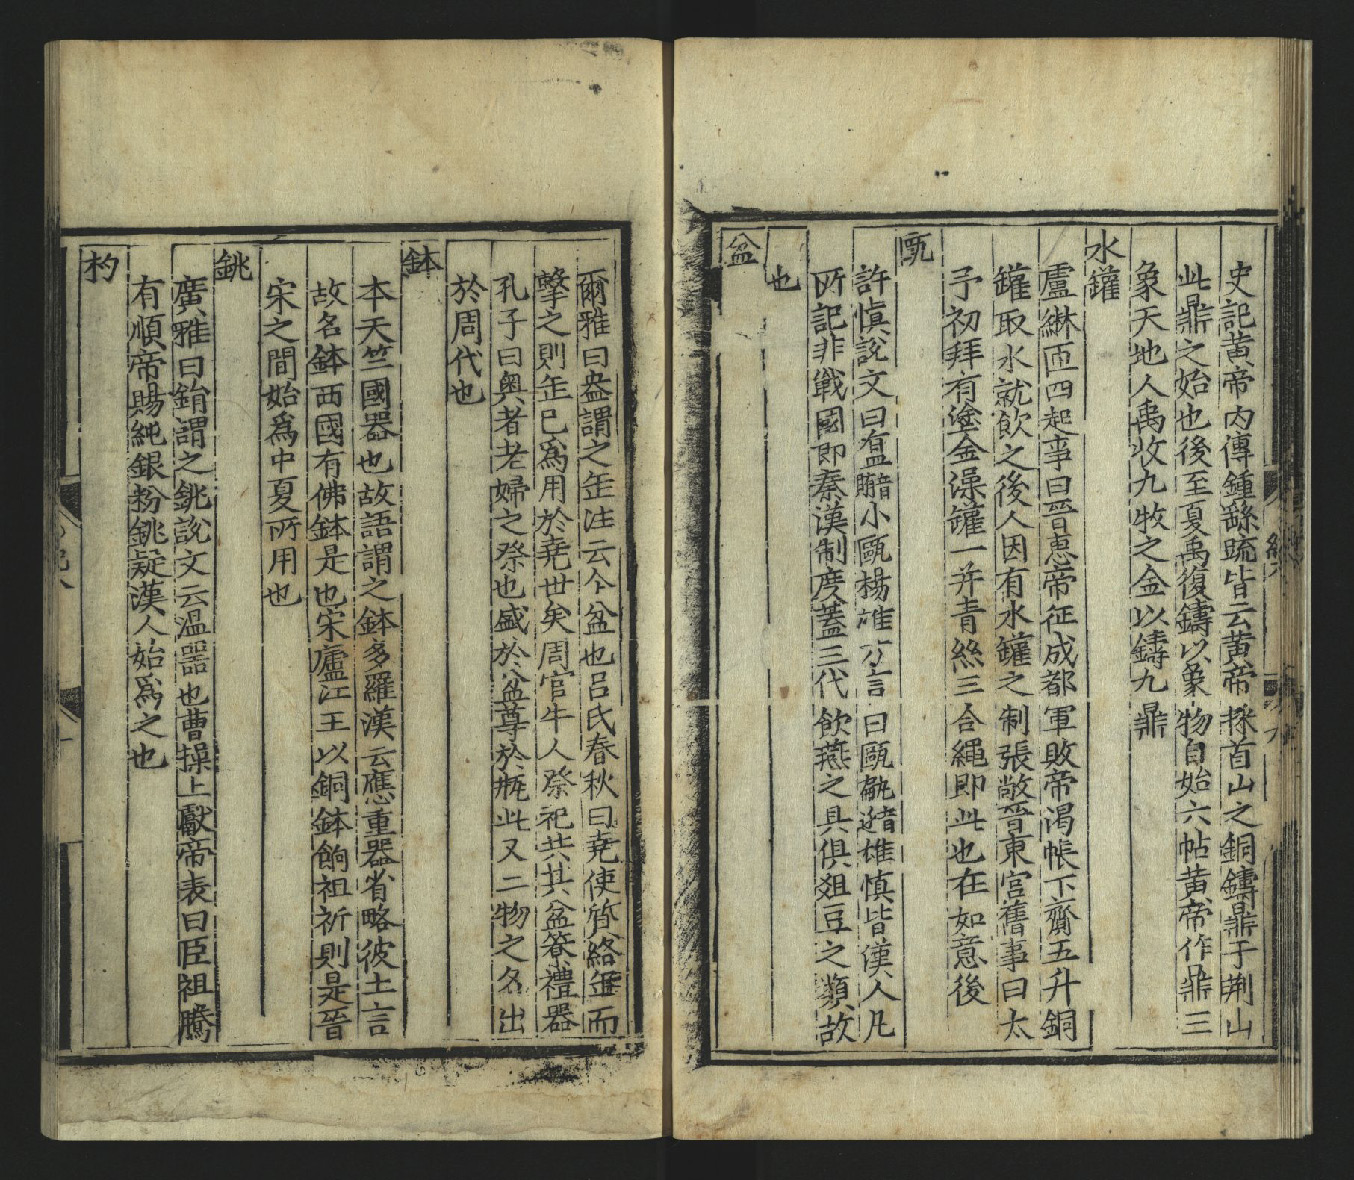 史記黄帝内傳鍾繇䟽皆云黄帝採首山之銅鑄鼎于荆山
此鼎之始也後至夏禹復鑄以象物自始六帖黄帝作鼎三
象天地人禹收九牧之金以鑄九鼎
水罐
盧綝四起事曰晋惠帝征成都軍敗帝渴帳下齎五升銅
罐取水就飲之後人因有水罐之制張敞晉東宫舊事曰太
子初拜有塗金澡罐一并青絲三合繩即此也在如意後
甌
許慎說文曰小甌楊雄方言曰甌雄慎皆漢人凡
所記非戰國即秦漢制度蓋三代飲燕之具俱爼豆之類故
也
盆
爾雅曰盎謂之缶注云今盆也吕氏春秋曰堯使質絡缶而
擊之則缶已爲用於堯世矣周官牛人祭祀共其盆簝禮器
孔子曰奥者老婦之祭也盛於盆尊於瓶此又二物之名出
於周代也
鉢
本天竺國器也故語謂之鉢多羅漢云應重器省略彼土言
故名鉢西國有佛鉢是也宋廬江王以銅鉢餉祖祈則是晉
宋之間始爲中夏所用也
銚
廣雅曰鋗謂之銚說文云温器也曹操上獻帝表曰臣祖騰
有順帝賜純銀粉銚疑漢人始爲之也
杓